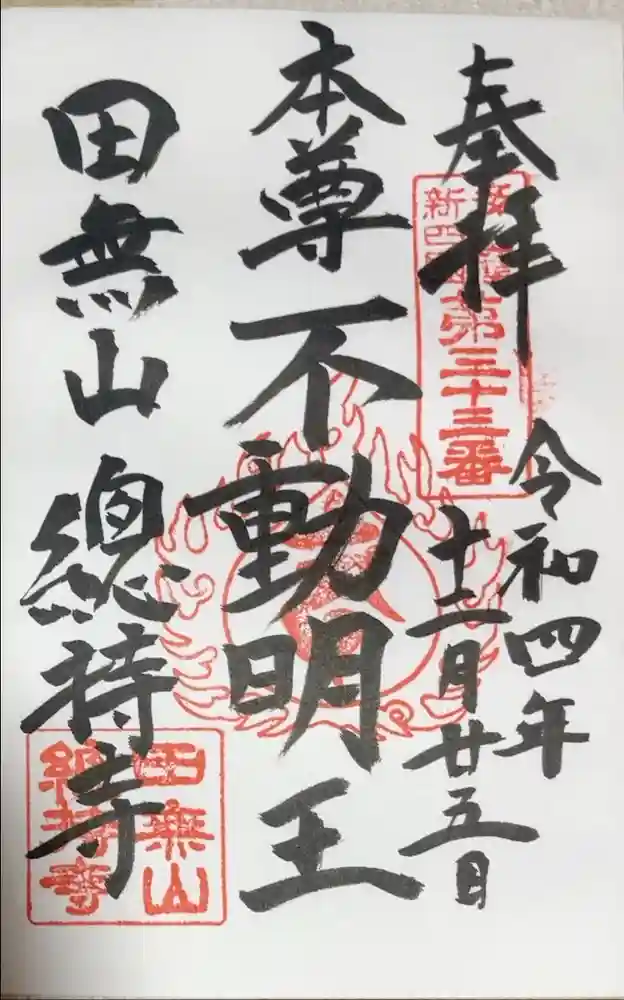 奉拝
令和四年
十二月廿五日
本尊不動明王
田無山總持寺
第三十三番
田無山
總持寺